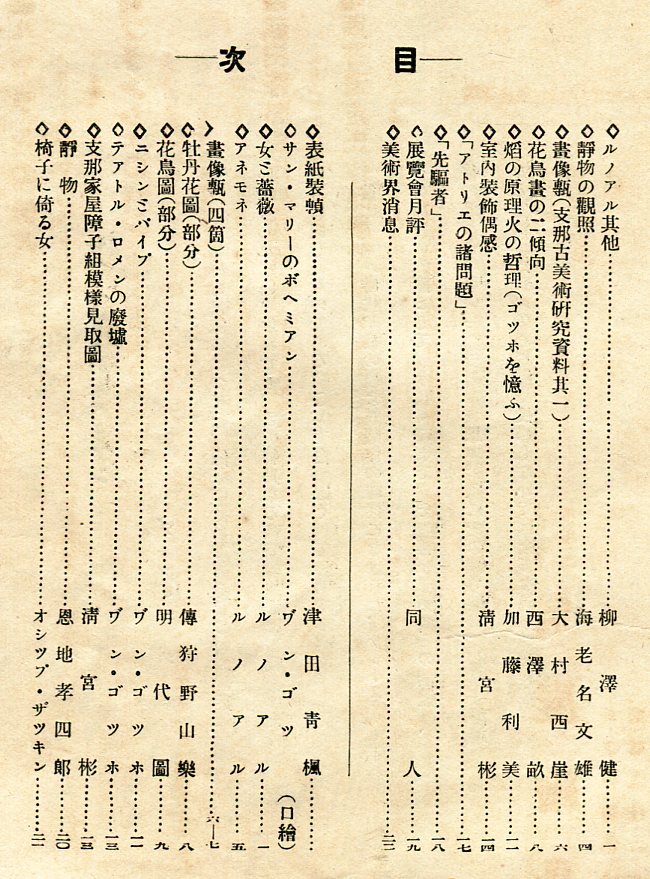 目次
◇ルノアル其他……柳澤健……一
◇靜物の觀照……海老名文雄……四
◇畫像甎(支那古美術硏究資料其一)……大村西崖……六
◇花鳥畫の二傾向……西澤畝……八
◇焰の原理火の哲理(ゴツホを憶ふ)……加藤利美……一一
◇室內裝飾偶感……淸宮彬……一四
◇「アトリエの諸問題」……一七
◇「先驅者」……一八
◇展覽會月評……同人……一九
◇美術界消息……二二
◇表紙裝幀……津田靑楓……
◇サン・マリーのボヘミアン……ヴン・ゴツホ(口繪)
◇女と薔薇……ルノアル……一
◇アネモネ……ルノアル……五
◇畫像甎(四箇)……六—七
◇牡丹花圖(部分)……傳狩野山樂……八
◇花鳥圖(部分)……明代圖……九
◇ニシンとパイプ……ヴン・ゴツホ……一一
◇テアトル・ロメンの廢墟……ヴン・ゴツホ……一三
◇支那家屋障子組模樣見取圖……淸宮彬……一三
◇靜物……恩地孝四郞……二〇
◇椅子に倚る女……オシツプ・ザツキン……二一